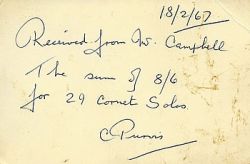 18/2/67
Received from W. Campbell
The sum of 8/6
for 29 Comet Solos
C Purvis